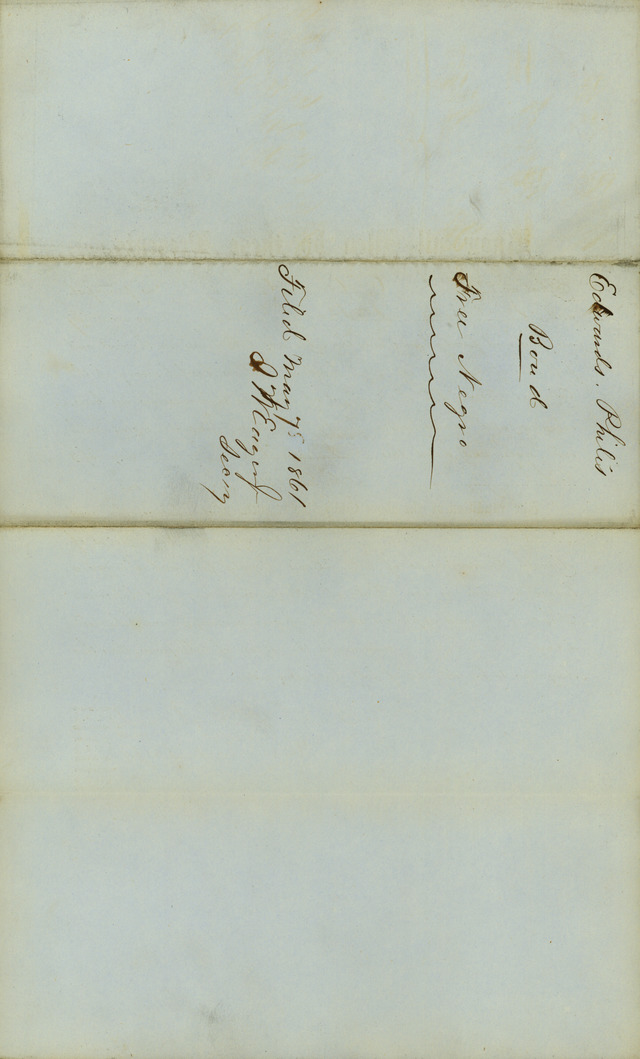 Edwards, Philis
Bond
Free Negro
Filed May 7th 1861